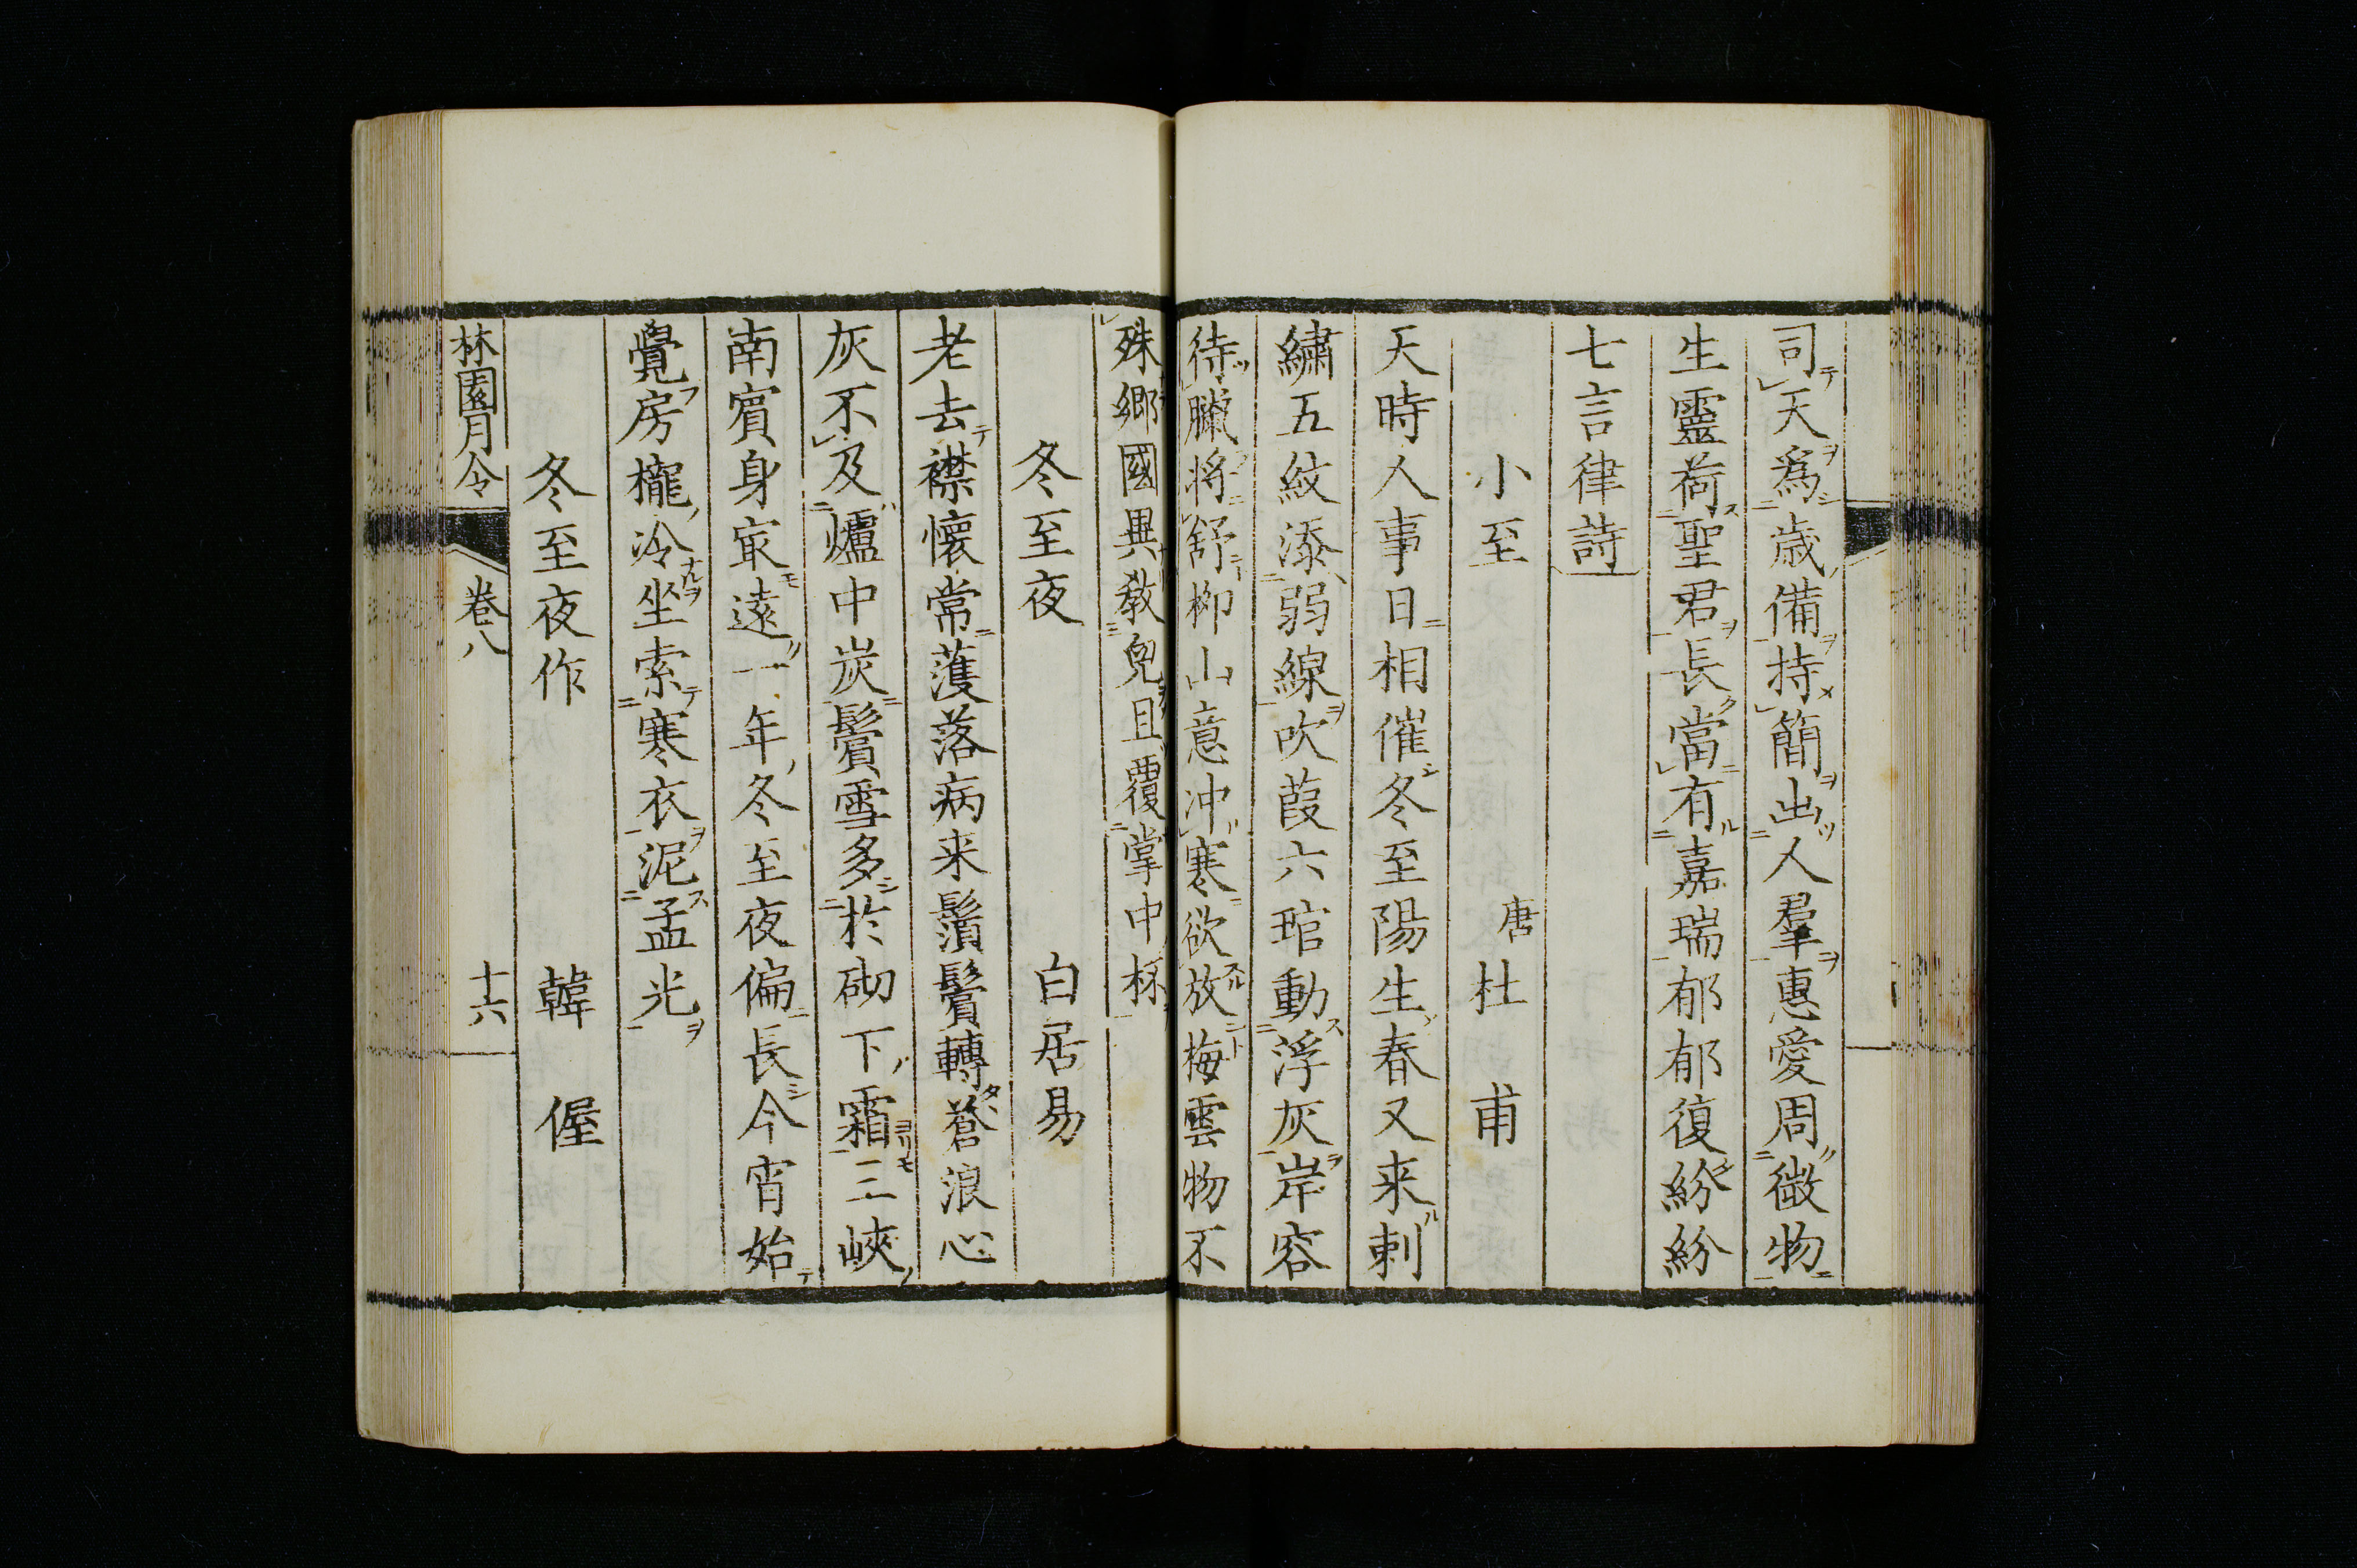 司天爲歳備持簡出人羣惠愛周微物
生靈荷聖君長當有嘉瑞郁郁復紛紛
七言律詩
小至 唐杜甫
天時人事日相催冬至陽生春又来刺
繡五紋添弱線吹葭六琯動浮灰岸容
待臘将舒柳山意冲寒欲放梅雲物不
殊鄉國異教兒且覆掌中杯
冬至夜 白居易
老去襟懷常濩落病来鬚鬢轉蒼浪心
灰不及爐中炭鬢雪多於砌下霜三峽
南賓身㝡遠一年冬至夜偏長今宵始
覺房櫳冷坐索寒衣泥孟光
冬至夜作 韓偓
林園月令 卷八 十六